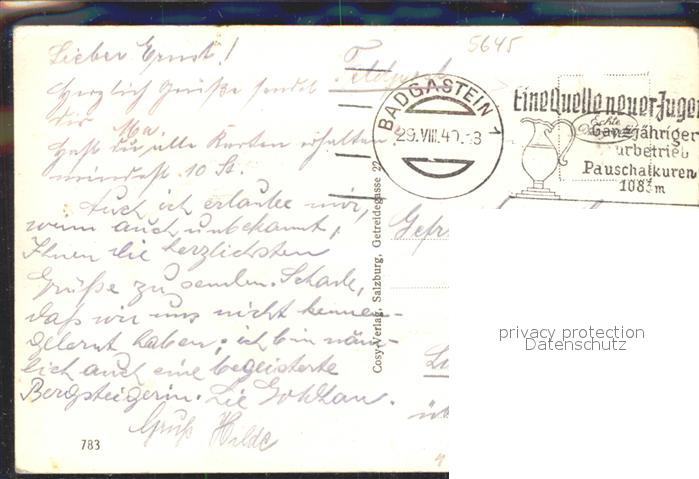 5645
Lieber Ernst!
Feldpost
Herzlich Grüße sendet
dir Ma.
Hast du alle Karten erhalten
mindest 10 St.
Auch ich erlaube mir,
wenn auch unbekannt,
Ihnen die herzlichsten
Grüße zu senden. Schade,
daß wir uns nicht kennen-
gelernt haben; ich bin näm-
lich auch eine begeisterte
Bergsteigerin.
Gruß Hilde
783
Cosy-Verlag, Salzburg, Getreidegasse 22
BADGASTEIN 1
29.VIII.40.-8
Eine Quelle neuer Jugen
Ganzjähriger
urbetrieb
Pauschalkuren
1083m
Gefr
privacy protection
Datenschutz